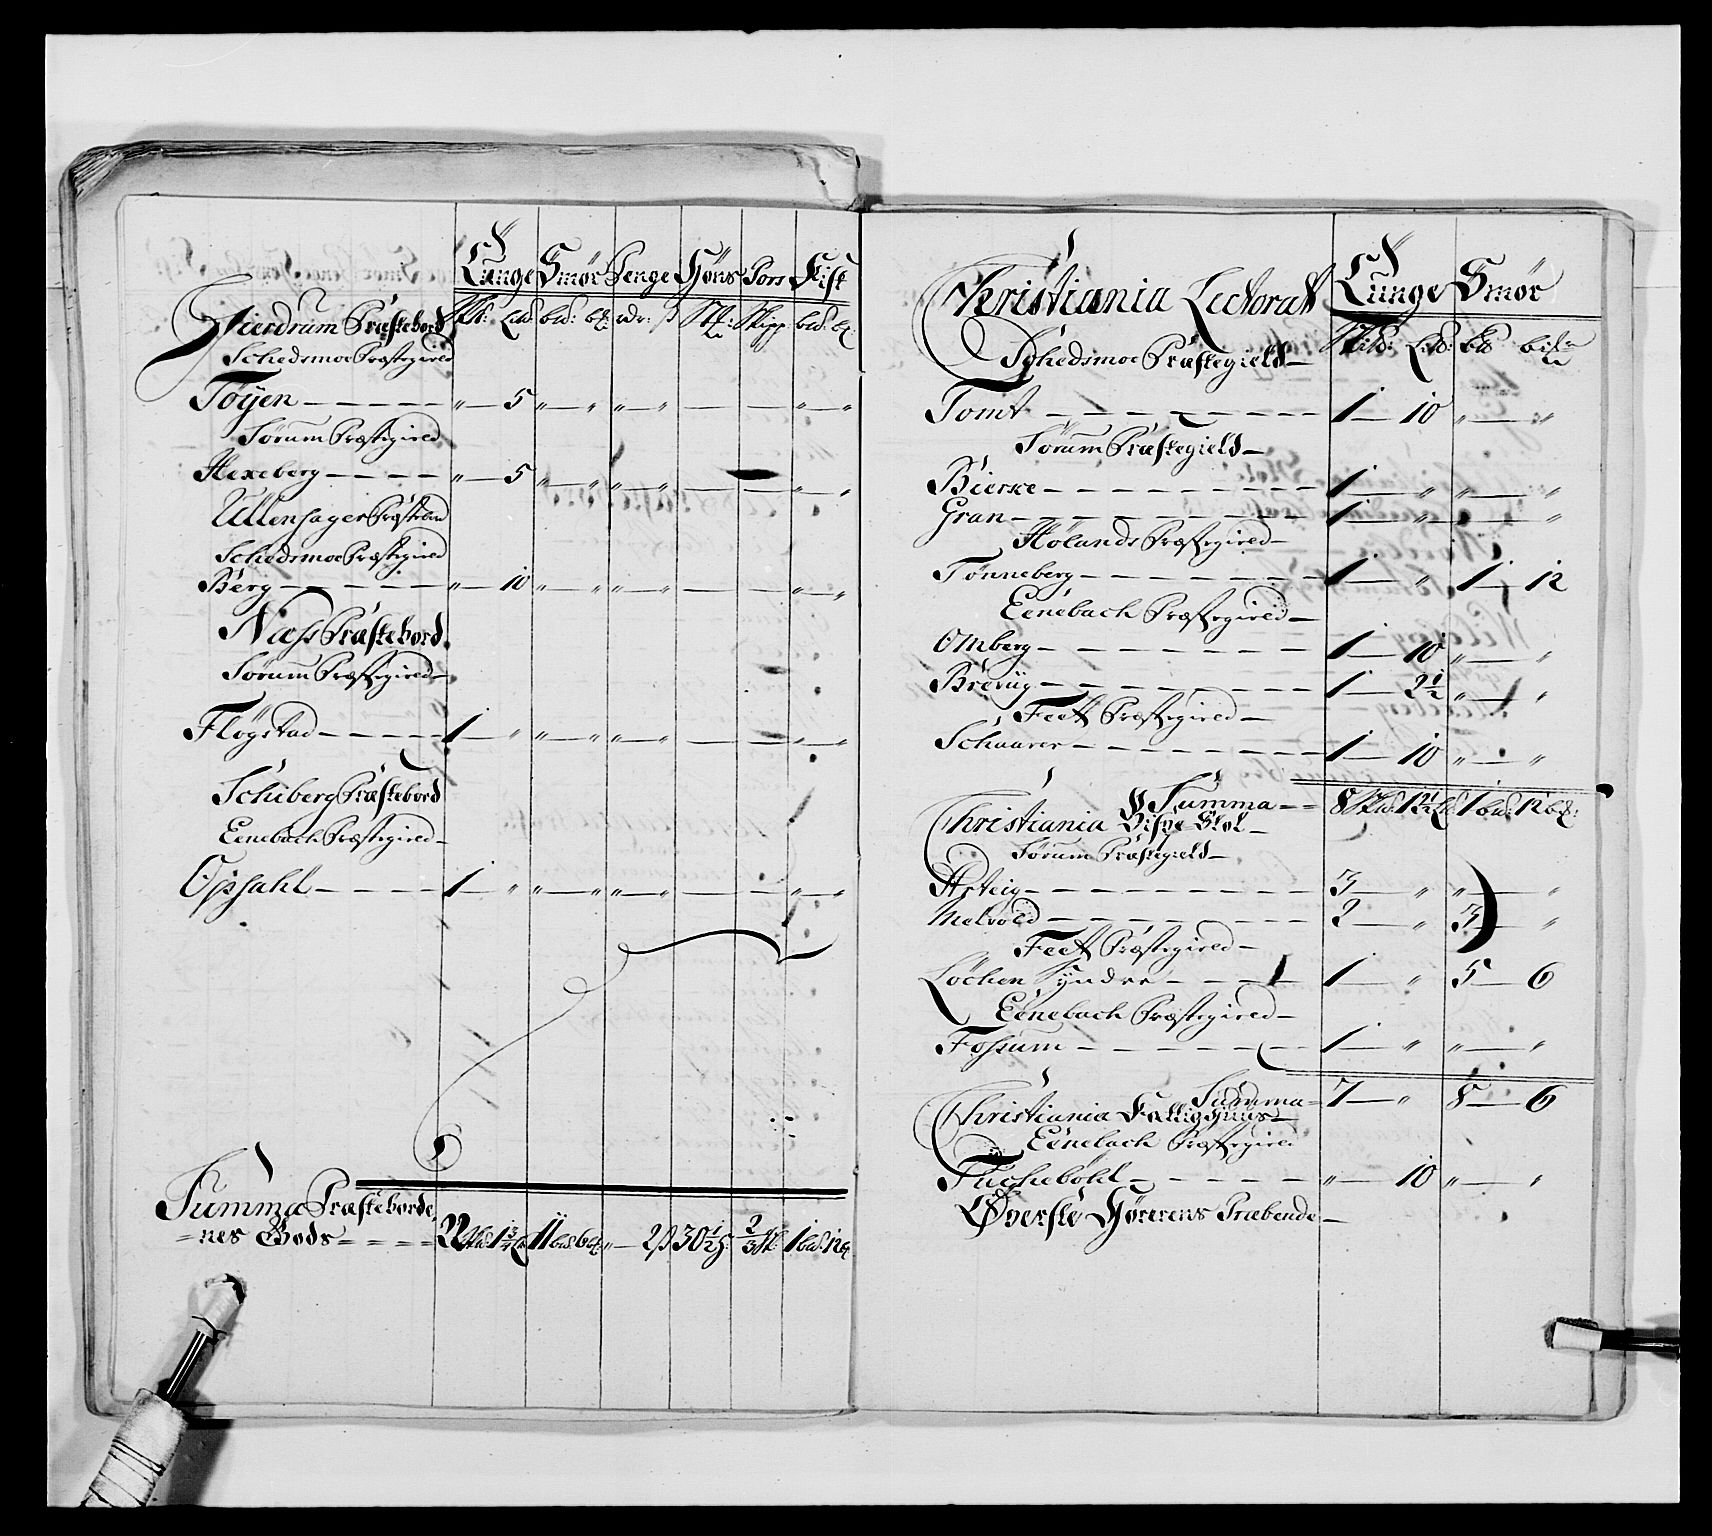 Tunge Smør Penge Høns Tors Fisk
Gierdrum Præstebord
Schedsmoe Præstegield
Töÿen — 5
Sørum Præstegield
Hexeberg — 5
Ullensager Præstebord
Schedsmoe Præstegield
Berg — 10
Næss Præstebord
Sørum Præstegield
Fløgstad — 1
Schiberg Præstebord
Eenebach Præstegield
Opsahl — 1
Summa Præsteborde
nes Gods
Christiania Lectorat Tunge Smør
Schedsmoe Præstegield
Tomt — 1 10
Sørum Præstegield
Bierke — 1
Gran — 1
Hølands Præstegield
Tønneberg — 1 " 1 12
Eenebach Præstegield
Omberg — 1 10
Brevig — 1 2½
Feet Præstegield
Schaarer — 1 10
Summa 8 12½ 1 12
Christiania Bispe Stol
Sørum Præstegield
Asteig — 3
Melvold — 2 " 3
Feet Præstegield
Løchen Syndre — 1 " 5 6
Eenebach Præstegield
Fossum — 1
Summa 7 " 8 6
Christiania Fattighuus
Eenebach Præstegield
Fuchebøhl — 10
Øverste Hørerens Præbende